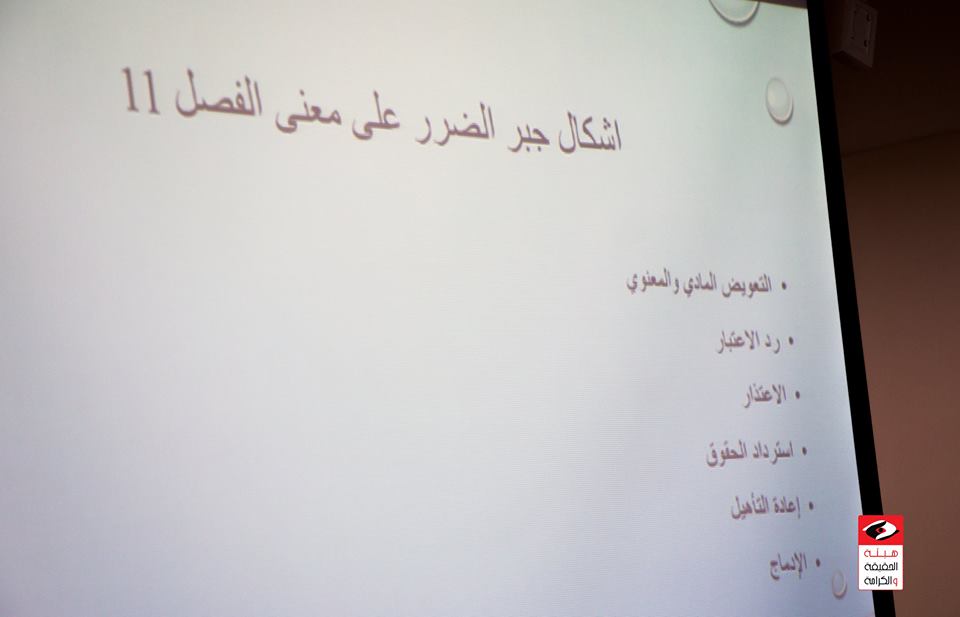 اشكال جبر الضرر على معنى الفصل 11
• التعويض المادي والمعنوي
• رد الاعتبار
• الاعتذار
• استرداد الحقوق
• إعادة التأهيل
• الإدماج
هيئة
الحقيقة
والكرامة